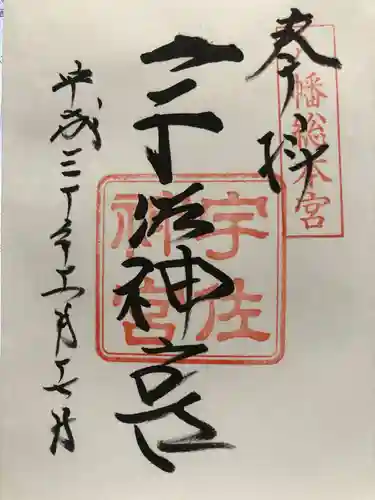 奉拝
八幡総本宮
宇佐神宮
宇佐神宮
平成三十年十二月十七日